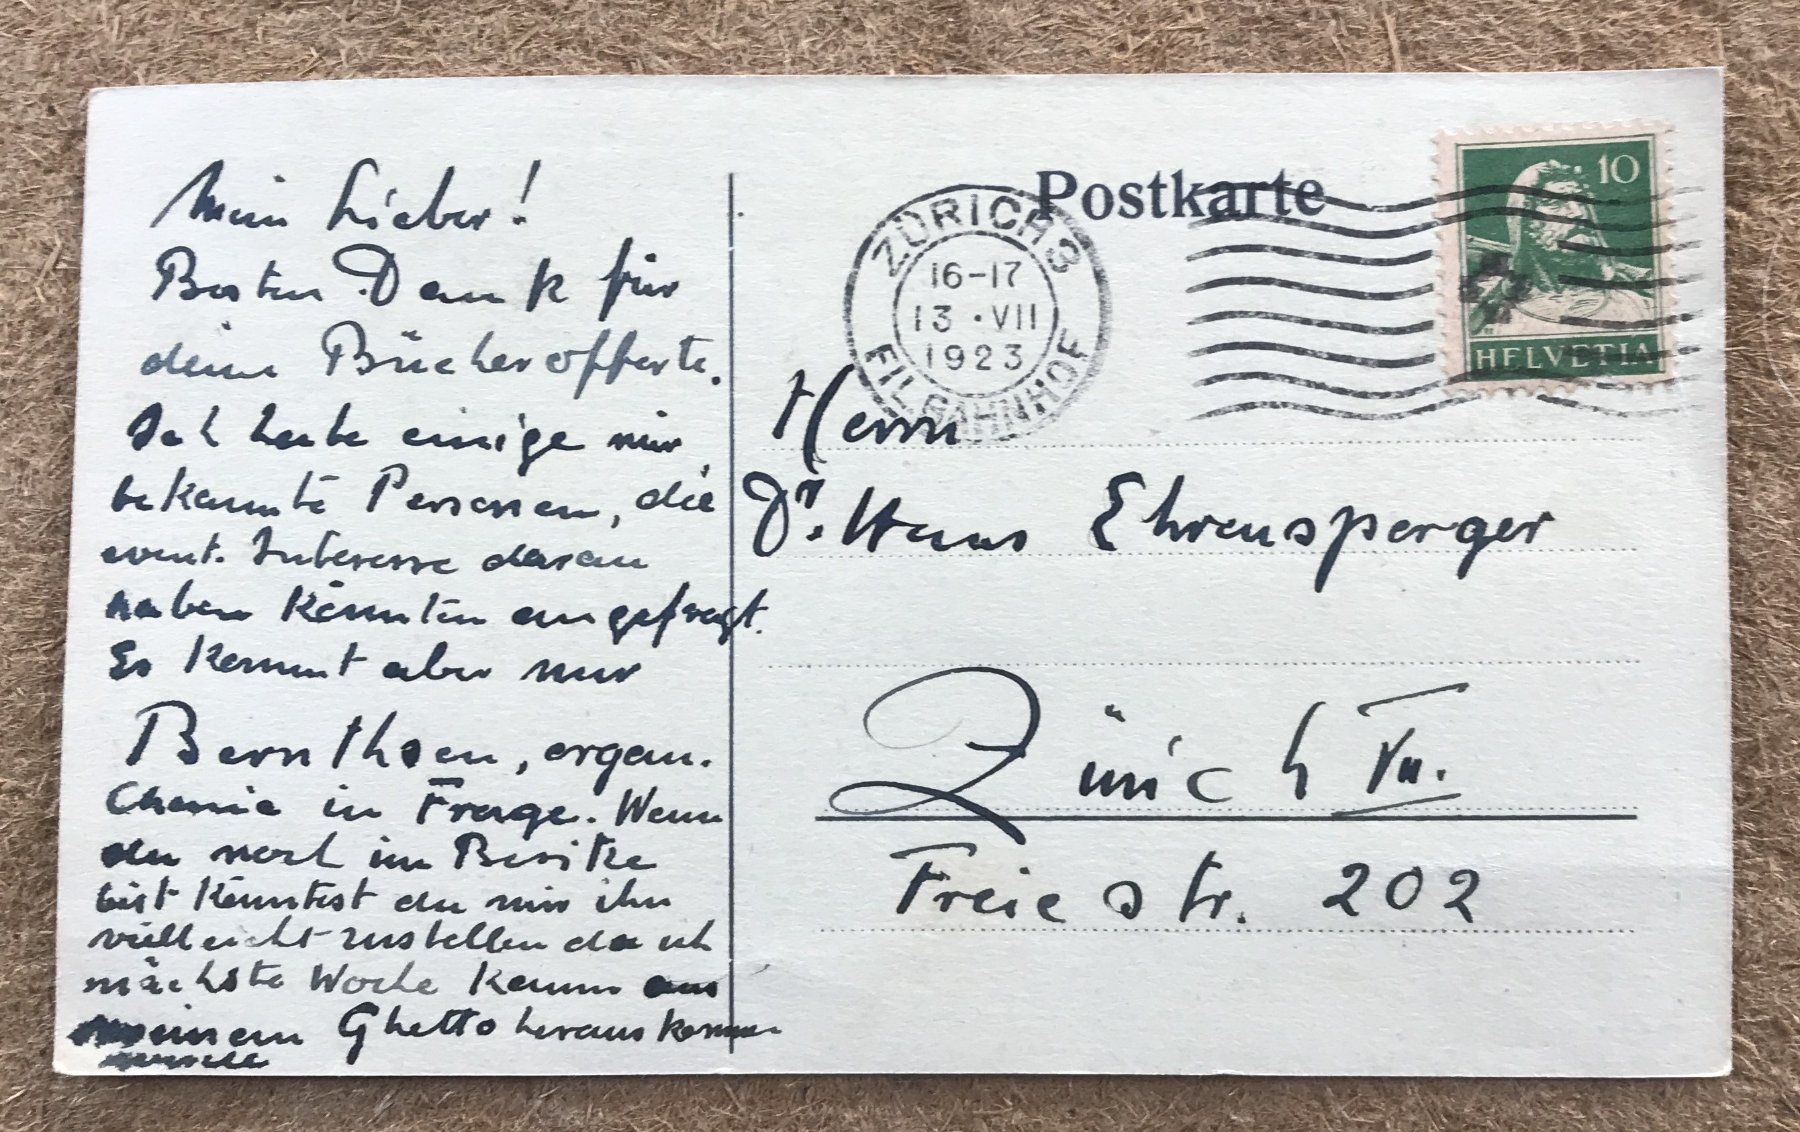 Mein Lieber!
Besten Dank für
deine Bücherofferte.
Ich habe einige mir
bekannte Personen, die
event. Interesse daran
haben könnten angefragt.
Es kommt aber nur
Bernthsen, organ.
Chemie in Frage. Wenn
du noch im Besitze
bist könntest du mir ihn
vielleicht zustellen da ich
nächste Woche kaum aus
meinem Ghetto herauskommen
werde
Postkarte
ZÜRICH 3
16-17
13 · VII
1923
FIL. BAHNHOF
10
HELVETIA
Herrn
Dr. Hans Ehrensperger
Zürich VII.
Freiestr. 202